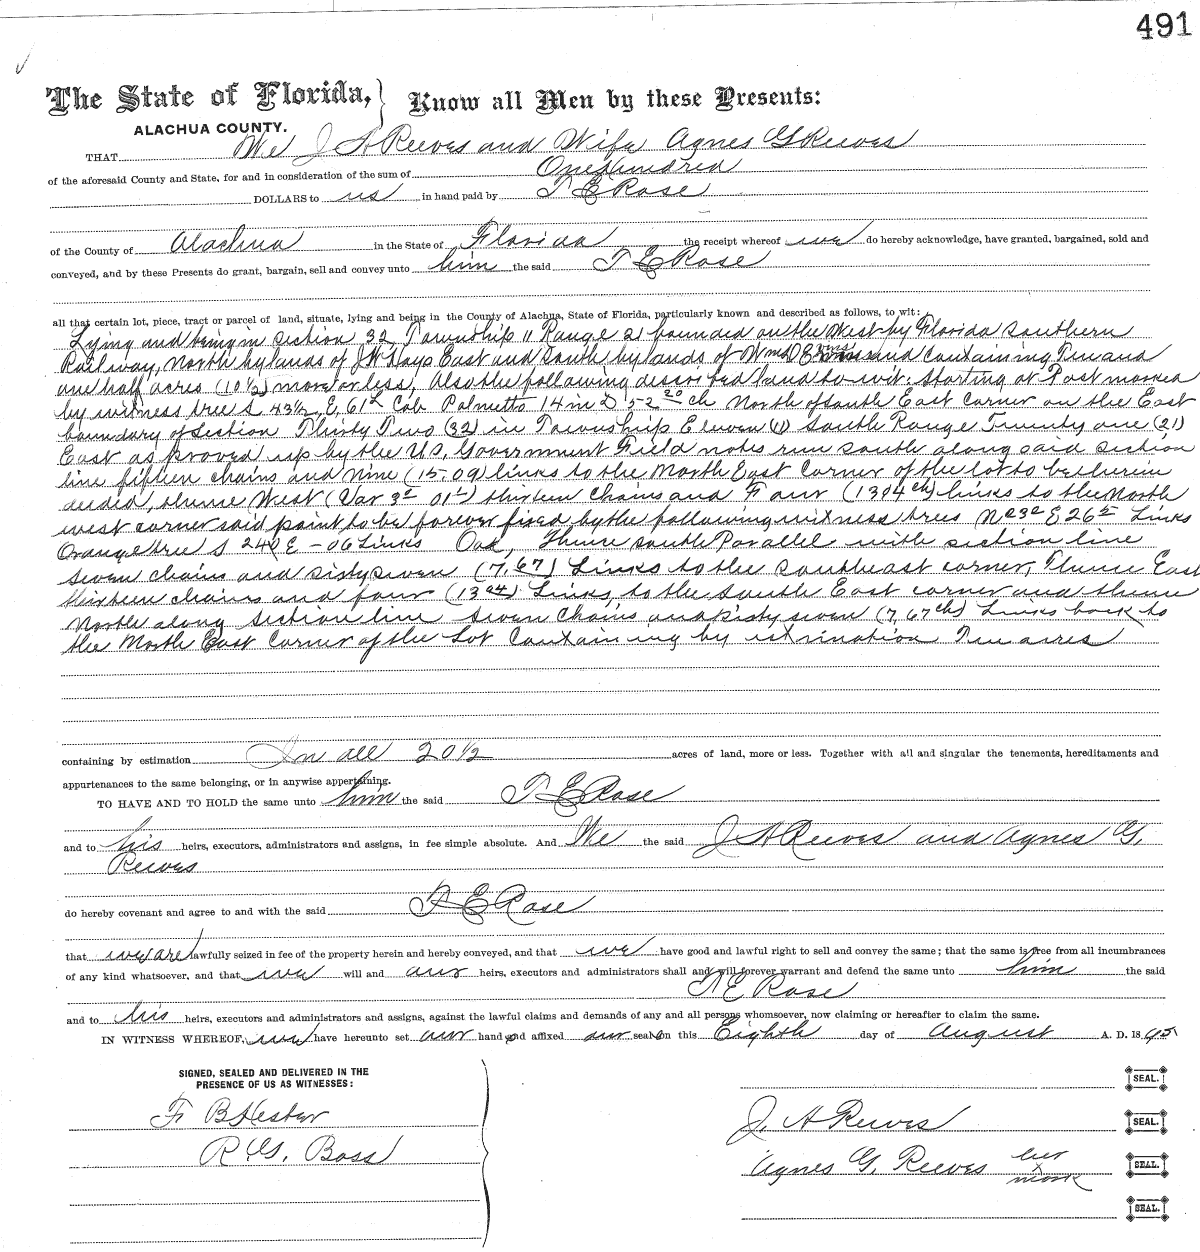 491
The State of Florida, } Know all Men by these Presents:
ALACHUA COUNTY.
THAT We J A Reeves and Wife Agnes G Reeves
of the aforesaid County and State, for and in consideration of the sum of One Hundred
DOLLARS to us in hand paid by T E Rose
of the County of Alachua in the State of Florida the receipt whereof we do hereby acknowledge, have granted, bargained, sold and
conveyed, and by these Presents do grant, bargain, sell and convey unto him the said T E Rose
all that certain lot, piece, tract or parcel of land, situate, lying and being in the County of Alachua, State of Florida, particularly known and described as follows, to wit:
Lying and being in section 32 Township 11 Range 21 bounded on the West by Florida Southern
Railway, North by lands of J W Hays East and South by lands of Wm D E and containing Ten and
one half acres (10 1/2) more or less, Also the following described land to-wit: Starting at Post marked
by witness tree S 43 1/2 E, 61 Cab Palmetto 14 in D, 52 20 ch North of South East corner on the East
boundary of Section Thirty Two (32) in Township Eleven (11) South Range Twenty one (21)
East as proved up by the U.S, Government Field notes run south along said section
line fifteen chains and Nine (15.09) links to the North East Corner of the lot to be herein
deeded, thence West (Var 3° 01') thirteen Chains and Four (1304 ch) links to the North
west corner said point to be forever fixed by the following witness trees E 26 Links
Orange tree S 24 E - 06 Links Oak, Thence South Parallel with section line
seven chains and sixty seven (7.67) Links to the southeast corner, Thence East
thirteen chains and four (13 04) Links, to the South East corner and thence
North along Section line seven Chains and sixty seven (7,67 ch) Links back to
the North East Corner of the Lot Containing by estimation Ten acres
containing by estimation In all 20 1/2 acres of land, more or less. Together with all and singular the tenements, hereditaments and
appurtenances to the same belonging, or in anywise appertaining.
TO HAVE AND TO HOLD the same unto him the said T E Rose
and to his heirs, executors, administrators and assigns, in fee simple absolute. And We the said J A Reeves and Agnes G.
Reeves
do hereby covenant and agree to and with the said T E Rose
that we are lawfully seized in fee of the property herein and hereby conveyed, and that we have good and lawful right to sell and convey the same; that the same is free from all incumbrances
of any kind whatsoever, and that we will and our heirs, executors and administrators shall and will forever warrant and defend the same unto him the said
T E Rose
and to his heirs, executors and administrators and assigns, against the lawful claims and demands of any and all persons whomsoever, now claiming or hereafter to claim the same.
IN WITNESS WHEREOF, we have hereunto set our hand and affixed our seal on this Eighth day of August A. D. 18 95
SIGNED, SEALED AND DELIVERED IN THE
PRESENCE OF US AS WITNESSES:
F B Hester
R. G. Bass
SEAL.
J. A Reeves SEAL.
Agnes G. Reeves her x mark SEAL.
SEAL.